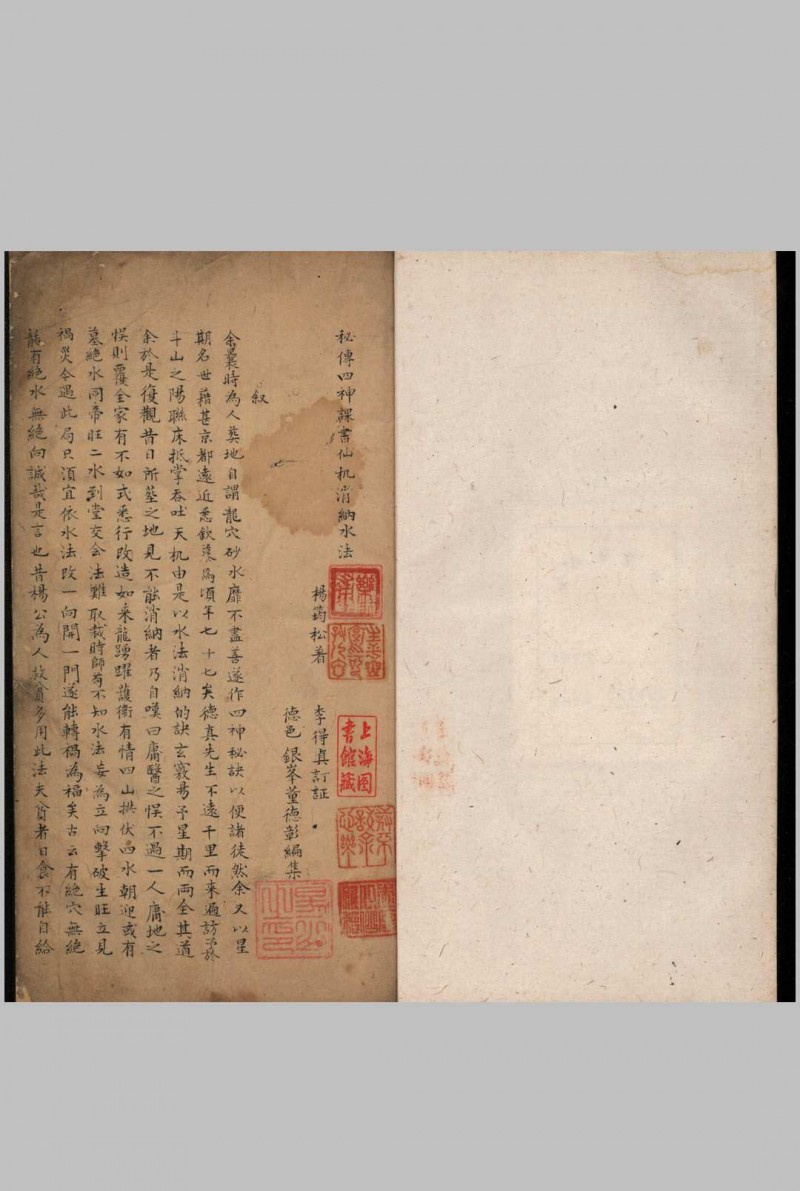 秘傳四神課書仙机消納水法
楊筠松著
李得真訂証
德邑銀峯董德彰編集
上海圖書館藏
叙
余曩時為人葬地自謂龍穴砂水靡不盡善遂作四神秘訣以便諸徒然余又以星
期名世藉甚京都遠近悉欽慕焉頃年七十七矣德真先生不遠千里而來過訪予於
斗山之陽聯床抵掌吞吐天机由是以水法消納的訣玄竅易予星期而兩全其道
余於是復觀昔日所塟之地見不能消納者乃自嘆曰庸醫之悞不過一人庸地之
悞則覆全家有不如式悉行改造如來龍踴躍護衛有情四山拱伏品水朝迎或有
墓絕水同帝旺二水到堂交会法難取裁時師苟不知水法妄為立向擊破生旺立見
禍災今遇此局只須宜依水法改一向開一門遂能轉禍為福矣古云有絕穴無絕
龍有絕水無絕向誠哉是言也昔楊公為人救貧多用此法夫貧者日食不能自給